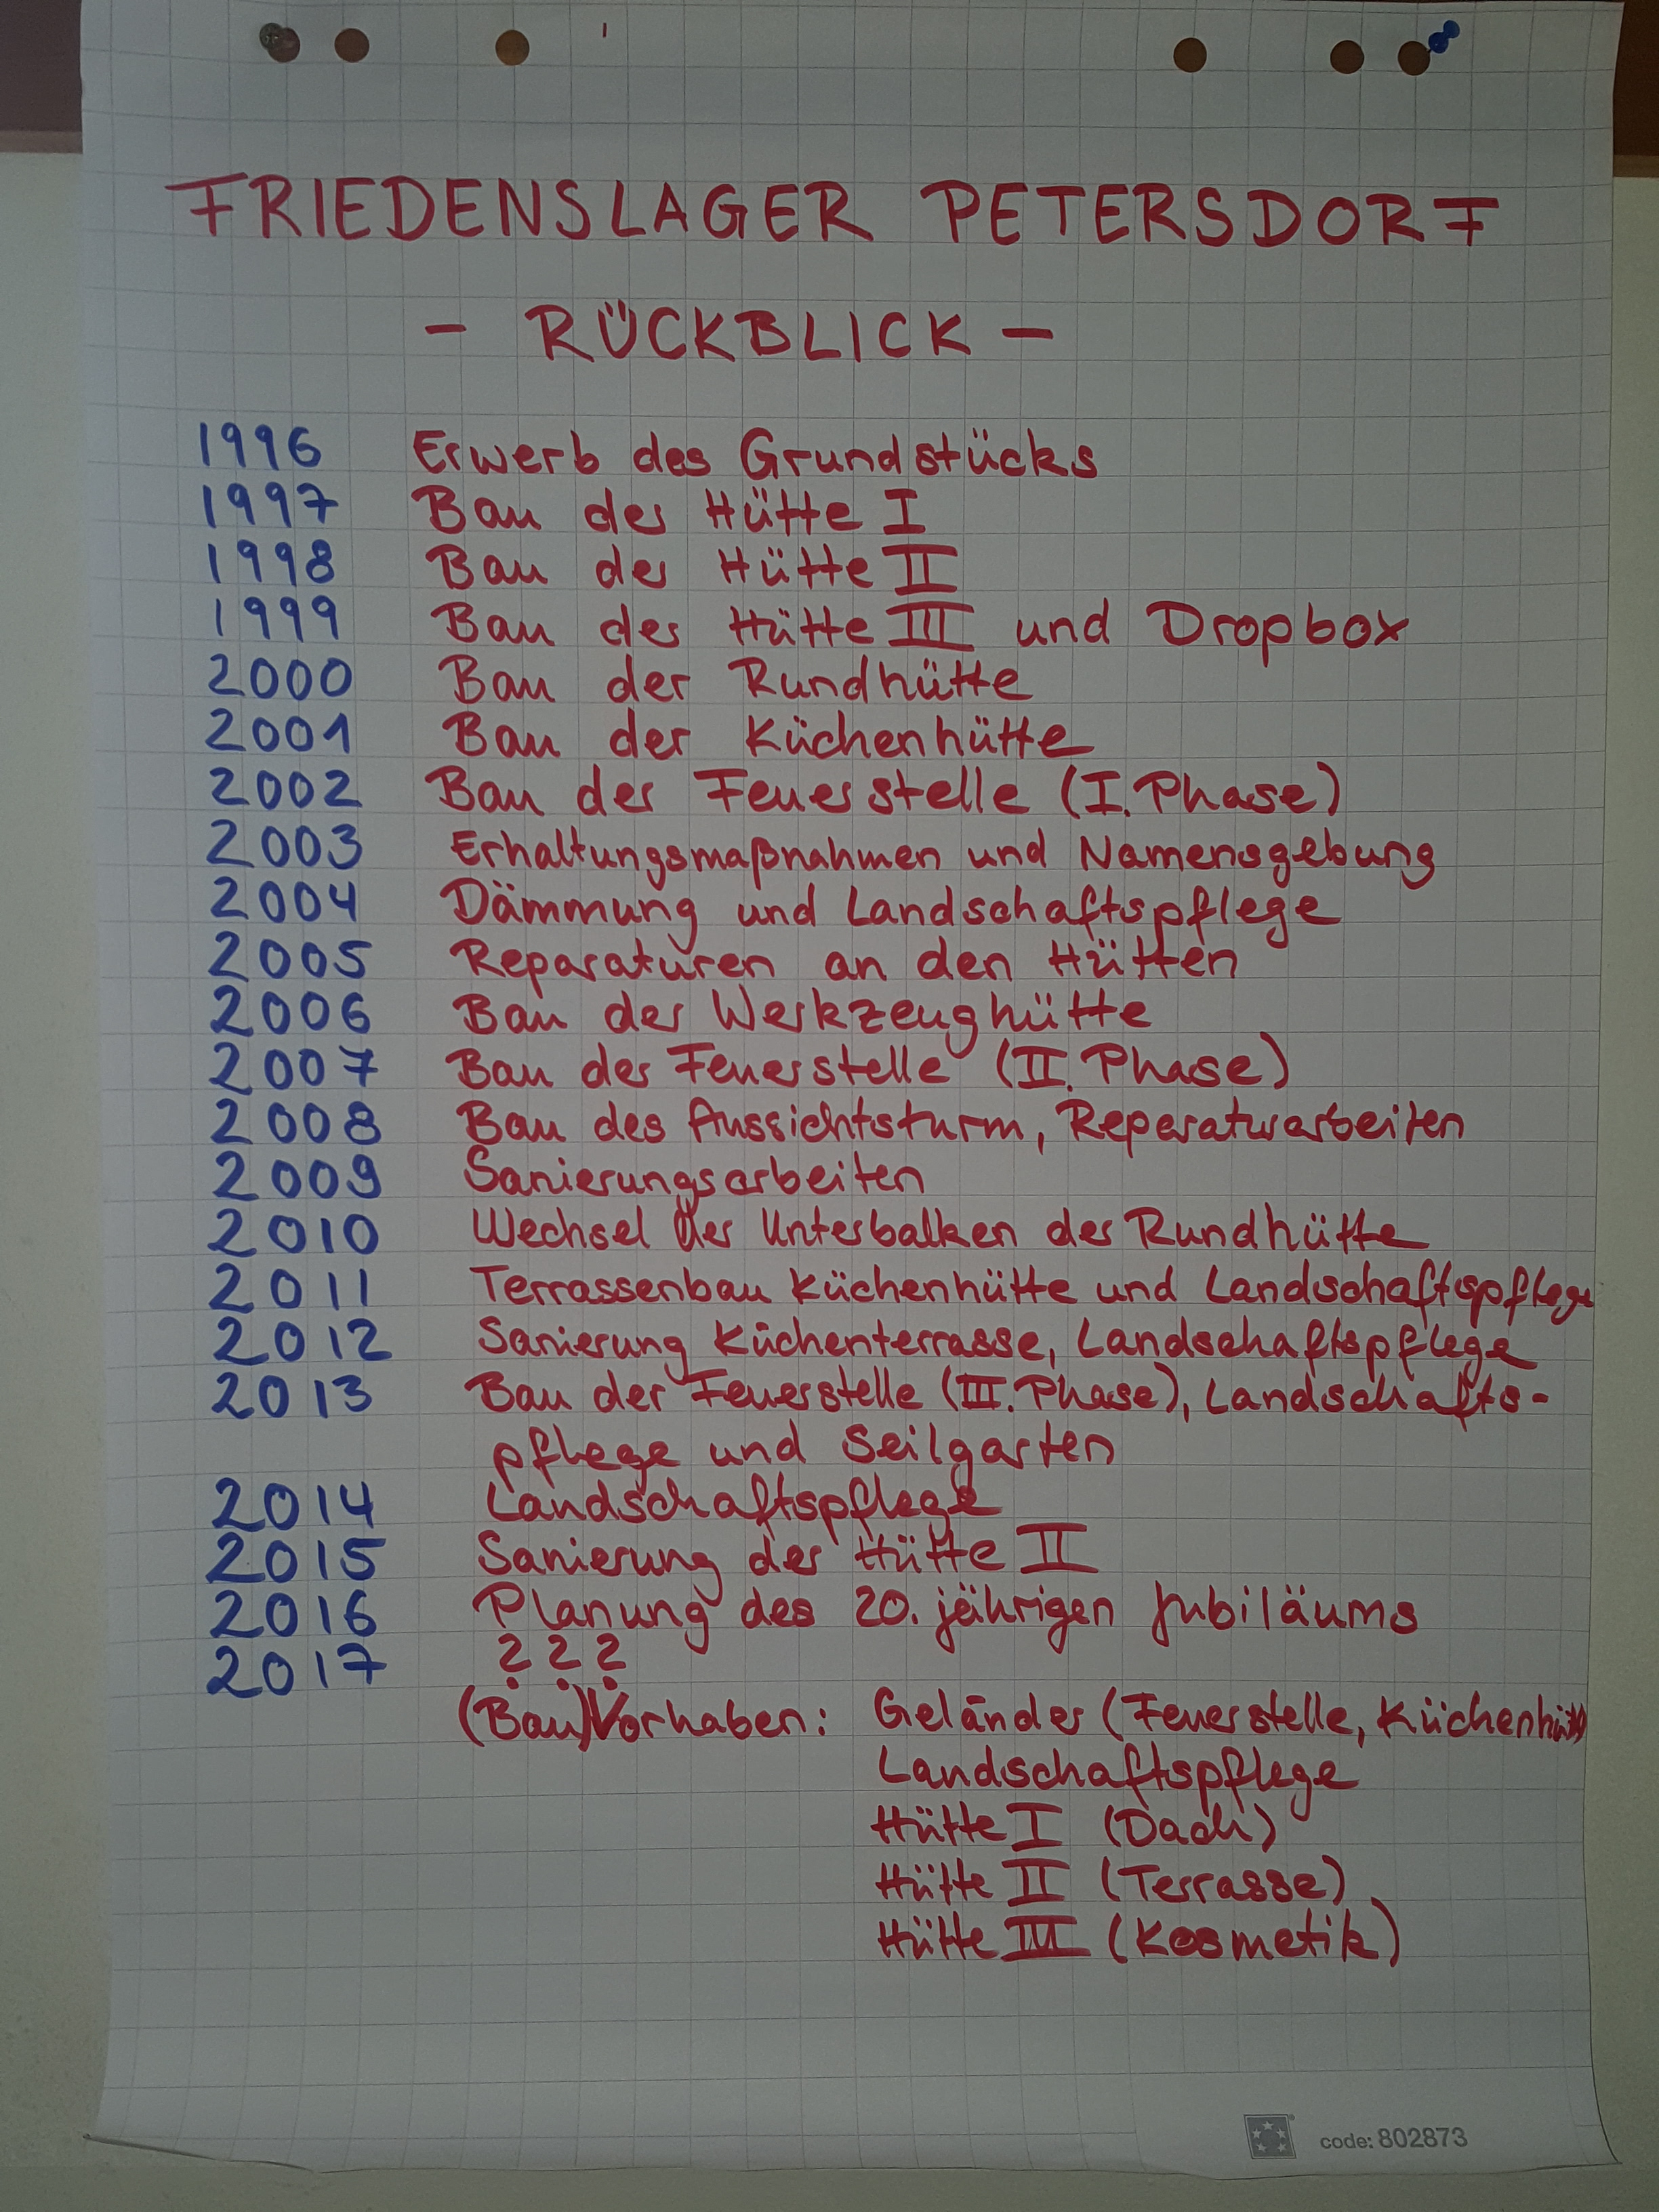 FRIEDENSLAGER PETERSDORF
- RÜCKBLICK -
1996 Erwerb des Grundstücks
1997 Bau der Hütte I
1998 Bau der Hütte II
1999 Bau der Hütte III und Dropbox
2000 Bau der Rundhütte
2001 Bau der Küchenhütte
2002 Bau der Feuerstelle (I. Phase)
2003 Erhaltungsmaßnahmen und Namensgebung
2004 Dämmung und Landschaftspflege
2005 Reparaturen an den Hütten
2006 Bau der Werkzeughütte
2007 Bau der Feuerstelle (II. Phase)
2008 Bau des Aussichtsturm, Reperaturarbeiten
2009 Sanierungsarbeiten
2010 Wechsel der Unterbalken der Rundhütte
2011 Terrassenbau Küchenhütte und Landschaftspflege
2012 Sanierung Küchenterrasse, Landschaftspflege
2013 Bau der Feuerstelle (III. Phase), Landschafts-
pflege und Seilgarten
2014 Landschaftspflege
2015 Sanierung der Hütte II
2016 Planung des 20. jährigen Jubiläums
2017 ???
(Bau)Vorhaben: Geländer (Feuerstelle, Küchenhütte)
Landschaftspflege
Hütte I (Dach)
Hütte II (Terrasse)
Hütte III (Kosmetik)
code: 802873